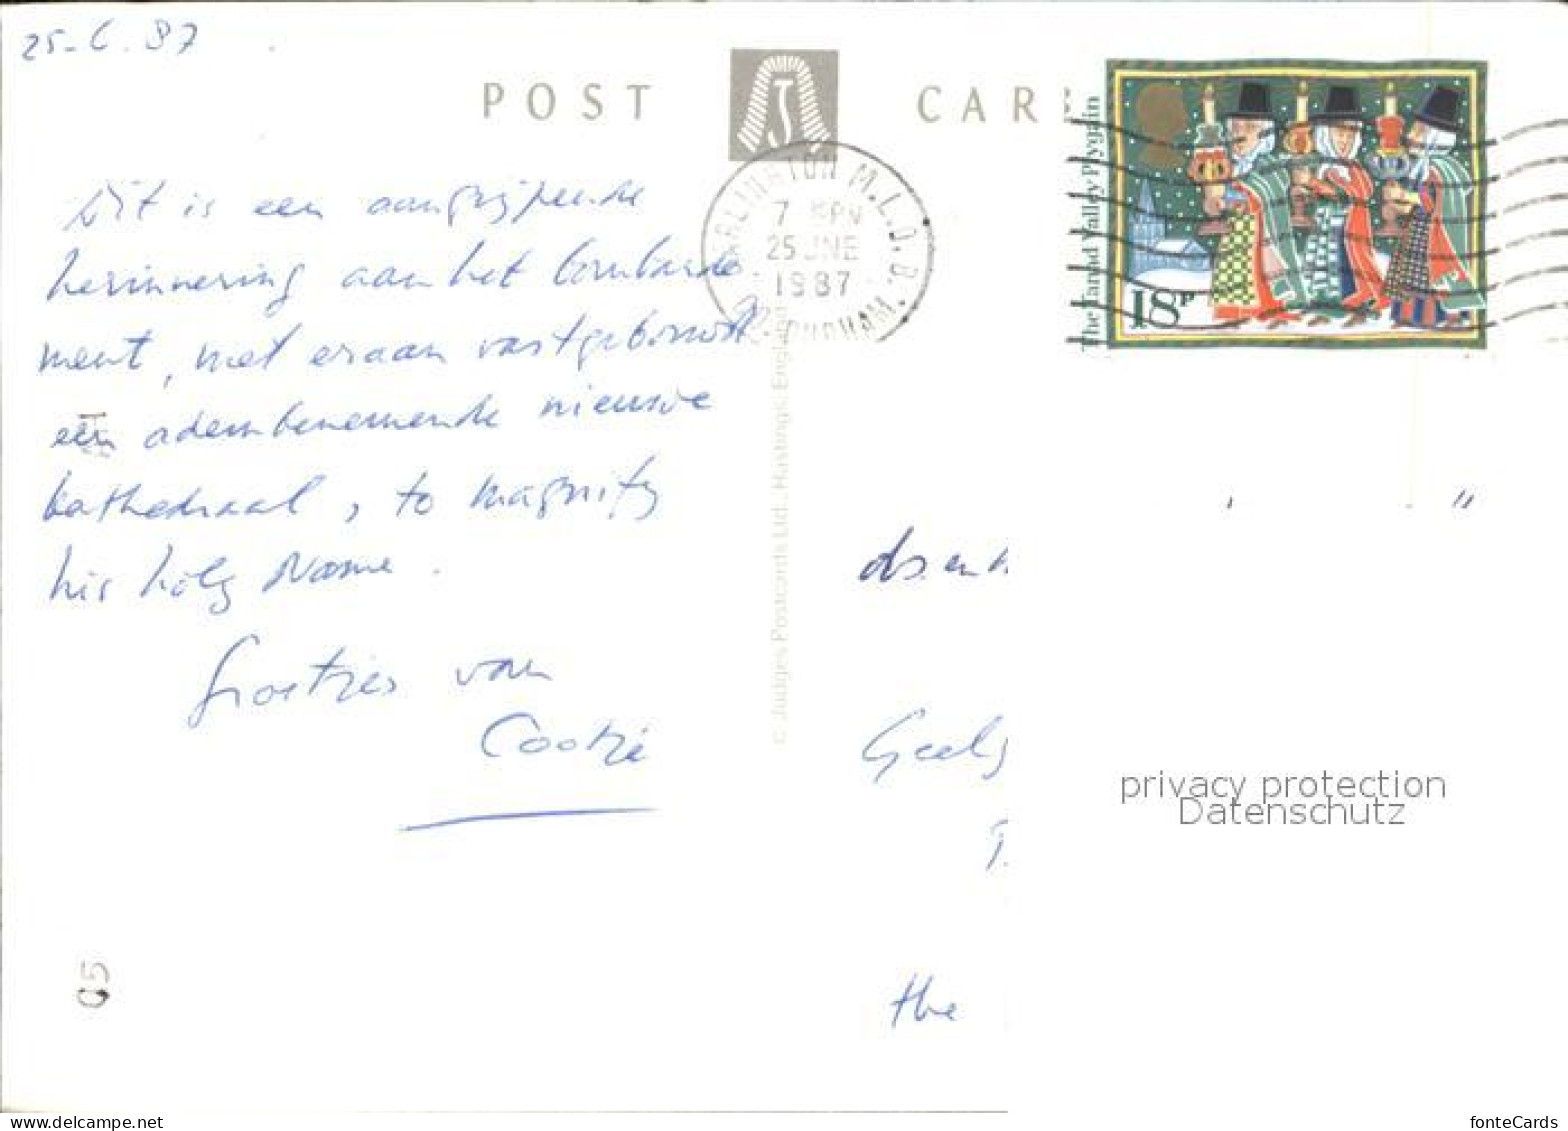 25-6.87
POST CAR
The Tar and Valley Plygain
18P
DARLINGTON M.L.O. B.
7 PM
25 JNE
1987
CO. DURHAM
Dit is een aangrijpende
herinnering aan het bombarde-
ment, met eraan vastgebouwd
een adembenemende nieuwe
kathedraal, to magnify
his holy Name.
Groetjes van
Cookie
© Judges Postcards Ltd., Hastings, England
ds. en
Geels
T.
the
privacy protection
Datenschutz
C5
fonteCards